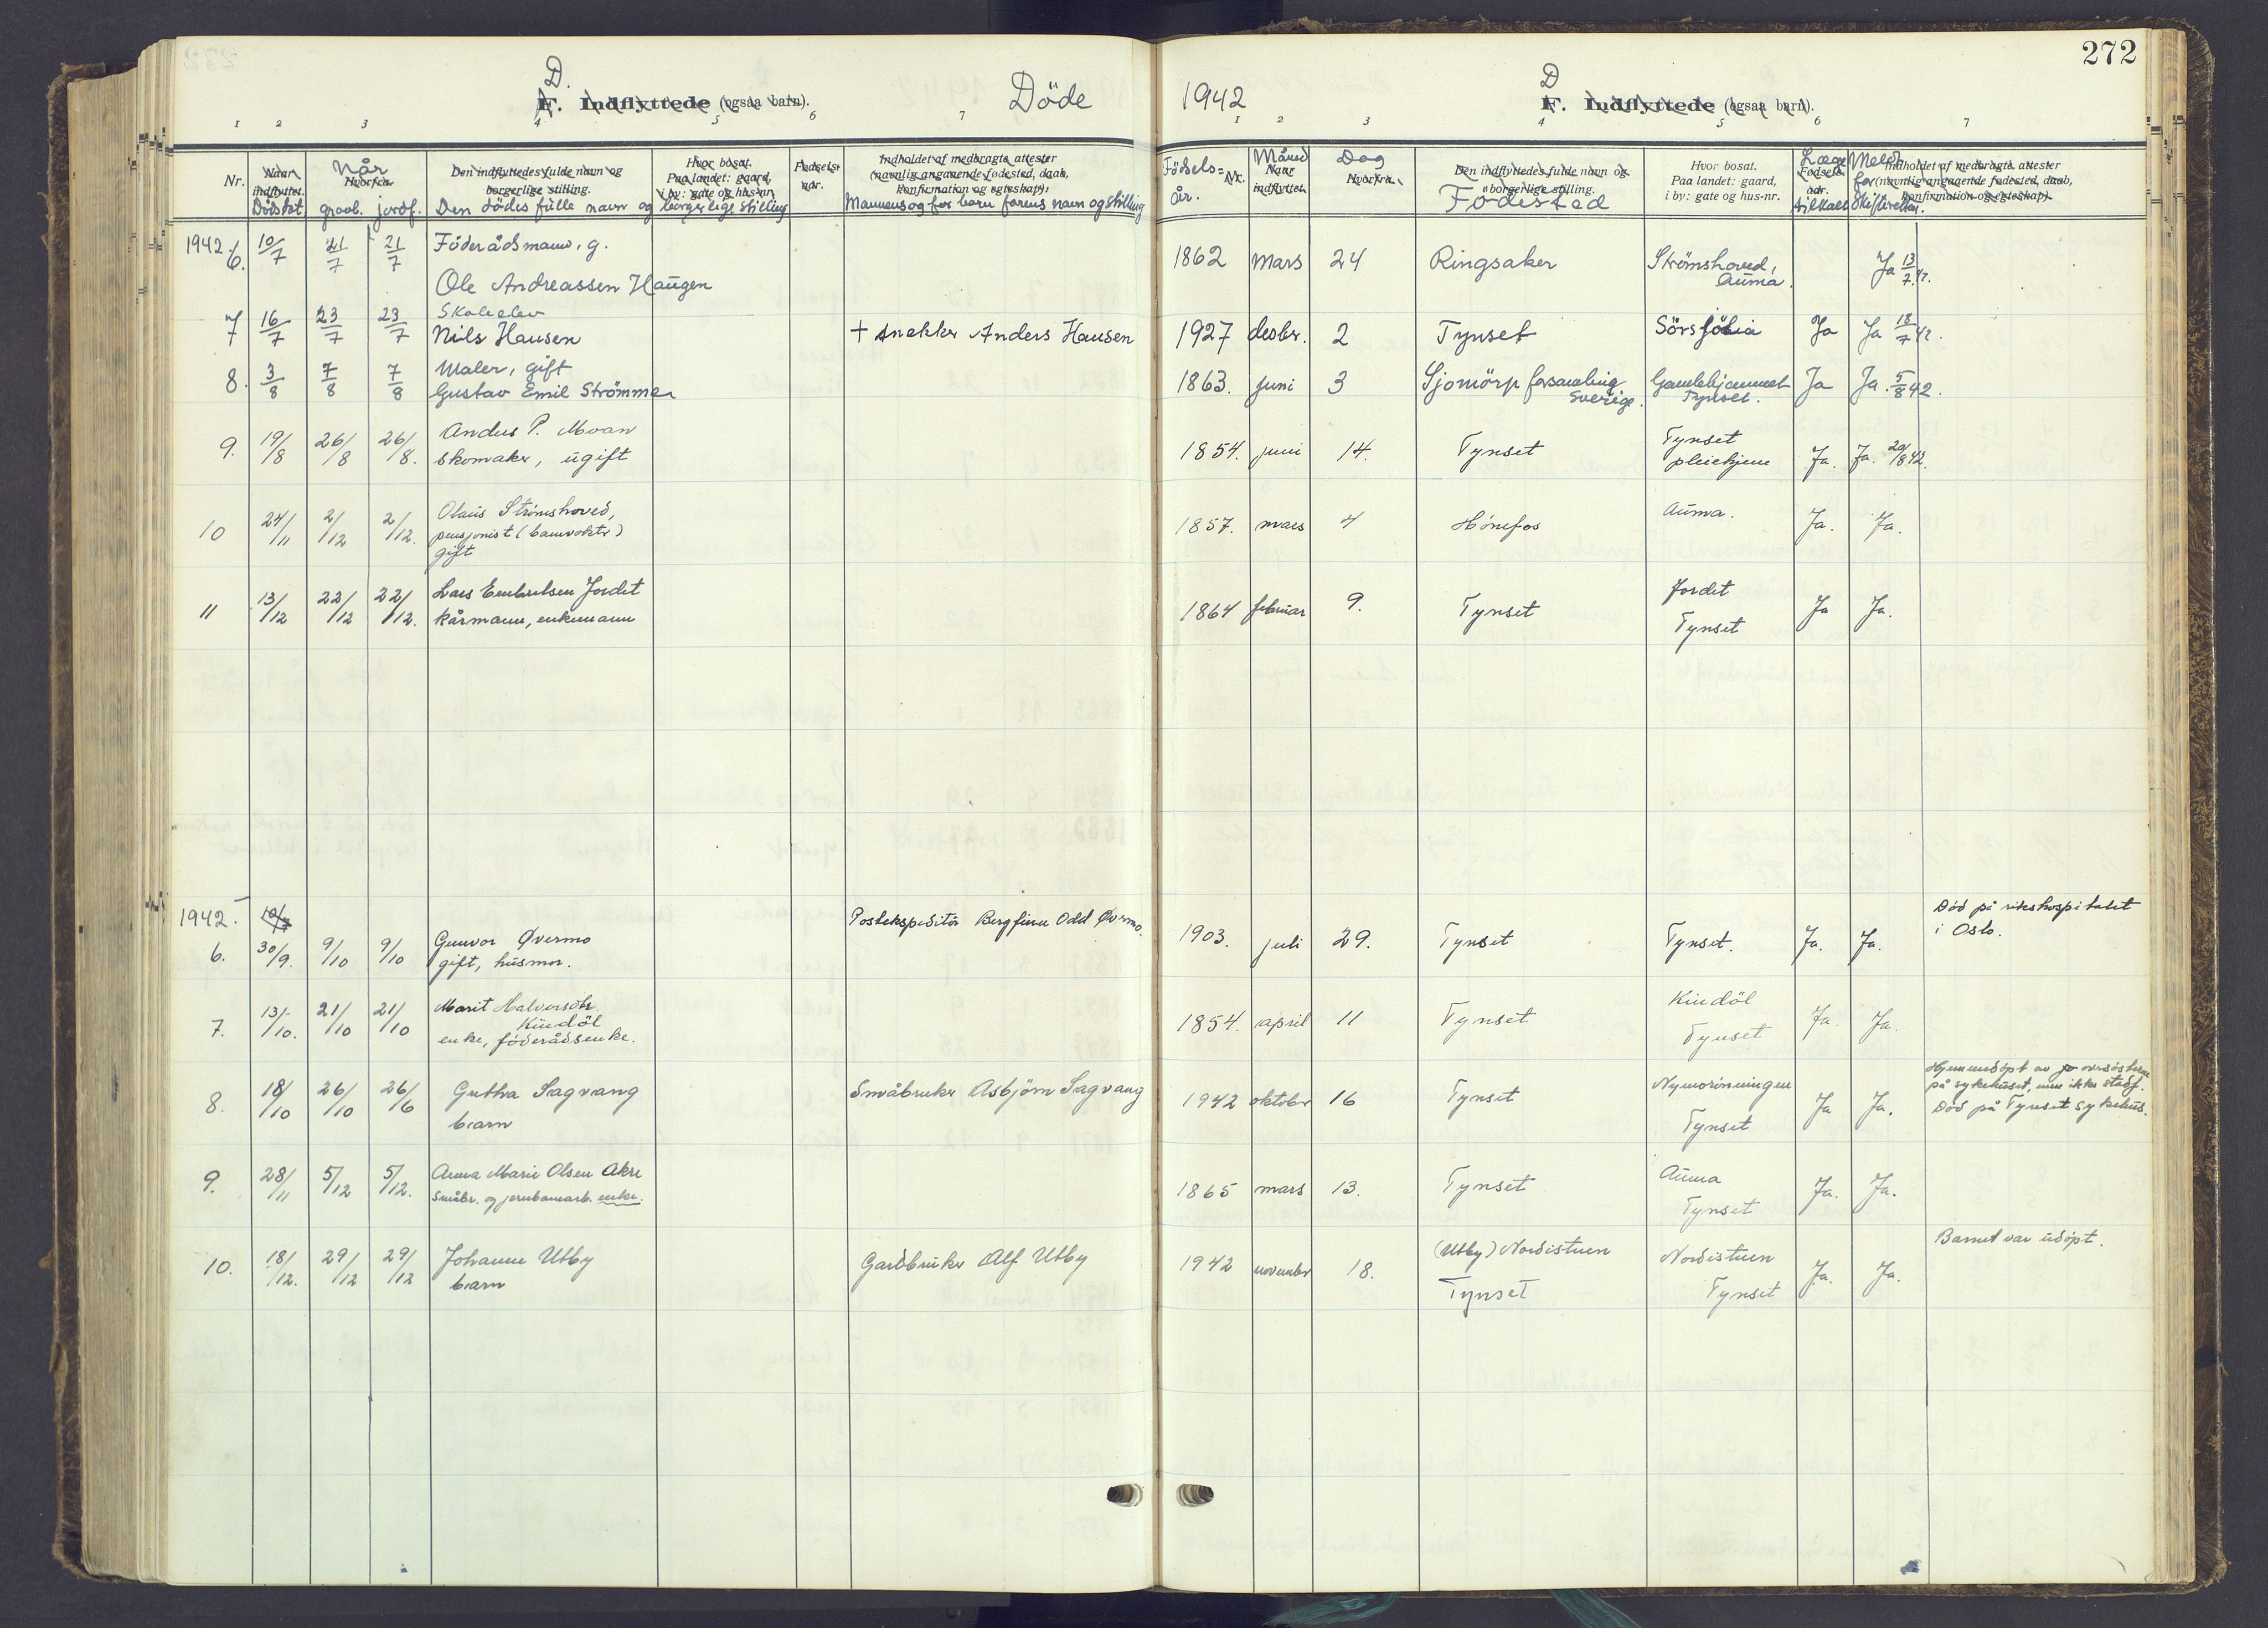 272
D.
F. Indflyttede (ogsaa barn).
Döde
1942
D
F. Indflyttede (ogsaa barn).
1 2 3 4 5 6 7
1 2 3 4 5 6 7
Nr.
Naar indflyttet.
Dödsdat.
Når
Hvorfra.
gravl. jordf.
Den indflyttedes fulde navn og
borgerlige stilling.
Den dödes fulle navn og borgerlige stilling
Hvor bosat.
Paa landet: gaard,
i by: gate og hus-nr.
Fødsels-
aar.
Indholdet af medbragte attester
(navnlig angaaende fødested, daab,
konfirmation og egteskap).
Mannens og for barn farens navn og stilling
Födsels-
år.
Nr.
Måned
Naar
indflyttet.
Dag
Hvorfra.
Den indflyttedes fulde navn og
borgerlige stilling.
Födested
Hvor bosat.
Paa landet: gaard,
i by: gate og hus-nr.
Læge
Fødsels-
aar.
tilkalt
Meldt
for
Skifteretten.
Indholdet af medbragte attester
(navnlig angaaende fødested, daab,
konfirmation og egteskap).
1942 6. 10/7 21/7 21/7 Föderådsmann, g. 1862 mars 24 Ringsaker Strömshoved, Ja 13/7 42.
Ole Andreassen Haugen Auma.
7 16/7 23/7 23/7 Skoleelev
Nils Hansen + snekker Anders Hansen 1927 desbr. 2 Tynset Ja Ja 18/7 42.
8. 3/8 7/8 7/8 Maler, gift
Gustav Emil Strömmen 1863. juni 3 Sjomörp forsamling Gamlehjemmet Ja Ja. 5/8 42.
Sverige. Tynset.
9. 19/8 26/8 26/8. Andus P. Moan
Skomaker, ugift 1854. juni 14. Tynset Tynset pleiehjem Ja. Ja. 20/8 42.
10 24/11 2/12 2/12. Olaus Strömshoved,
pensjonist (banevokter)
gift 1857. mars 4 Hönefos Auma. Ja. Ja.
11 13/12 22/12 22/12. Lars Embretsen Jordet
kårmann, enkemann 1864 februar 9. Tynset Jordet Tynset Ja Ja.
1942. 10/7
6. 30/9. 9/10 9/10 Gunvor Øvermo
gift, husmor. Postekspeditör Bergfinn Odd Øvermo. 1903. juli 29. Tynset Tynset. Ja. Ja. Död på rikshospitalet
i Oslo.
7. 13/10. 21/10 21/10 Marit Halvorsdtr.
Kindöl
enke, föderådsenke. 1854. april 11 Tynset Kindöl Tynset Ja. Ja.
8. 18/10 26/10 26/6 Guthra Sagvang
barn Småbruker Asbjörn Sagvang 1942 oktober 16 Tynset Nymorinningen Tynset Ja Ja. Hjemmedöpt av oversösteren
på sykehuset, men ikke stadf.
Död på Tynset sykehus.
9. 28/11 5/12 5/12. Anna Marie Olsen Akre
Småbr. og jernbanearb. enke. 1865 mars 13. Tynset Auma Tynset Ja. Ja.
10. 18/12. 29/12 29/12 Johanne Utby
barn Gardbruker Alf Utby 1942 november 18. (Utby) Nordistuen Tynset Nordistuen Tynset Ja. Ja. Barnet var udöpt.